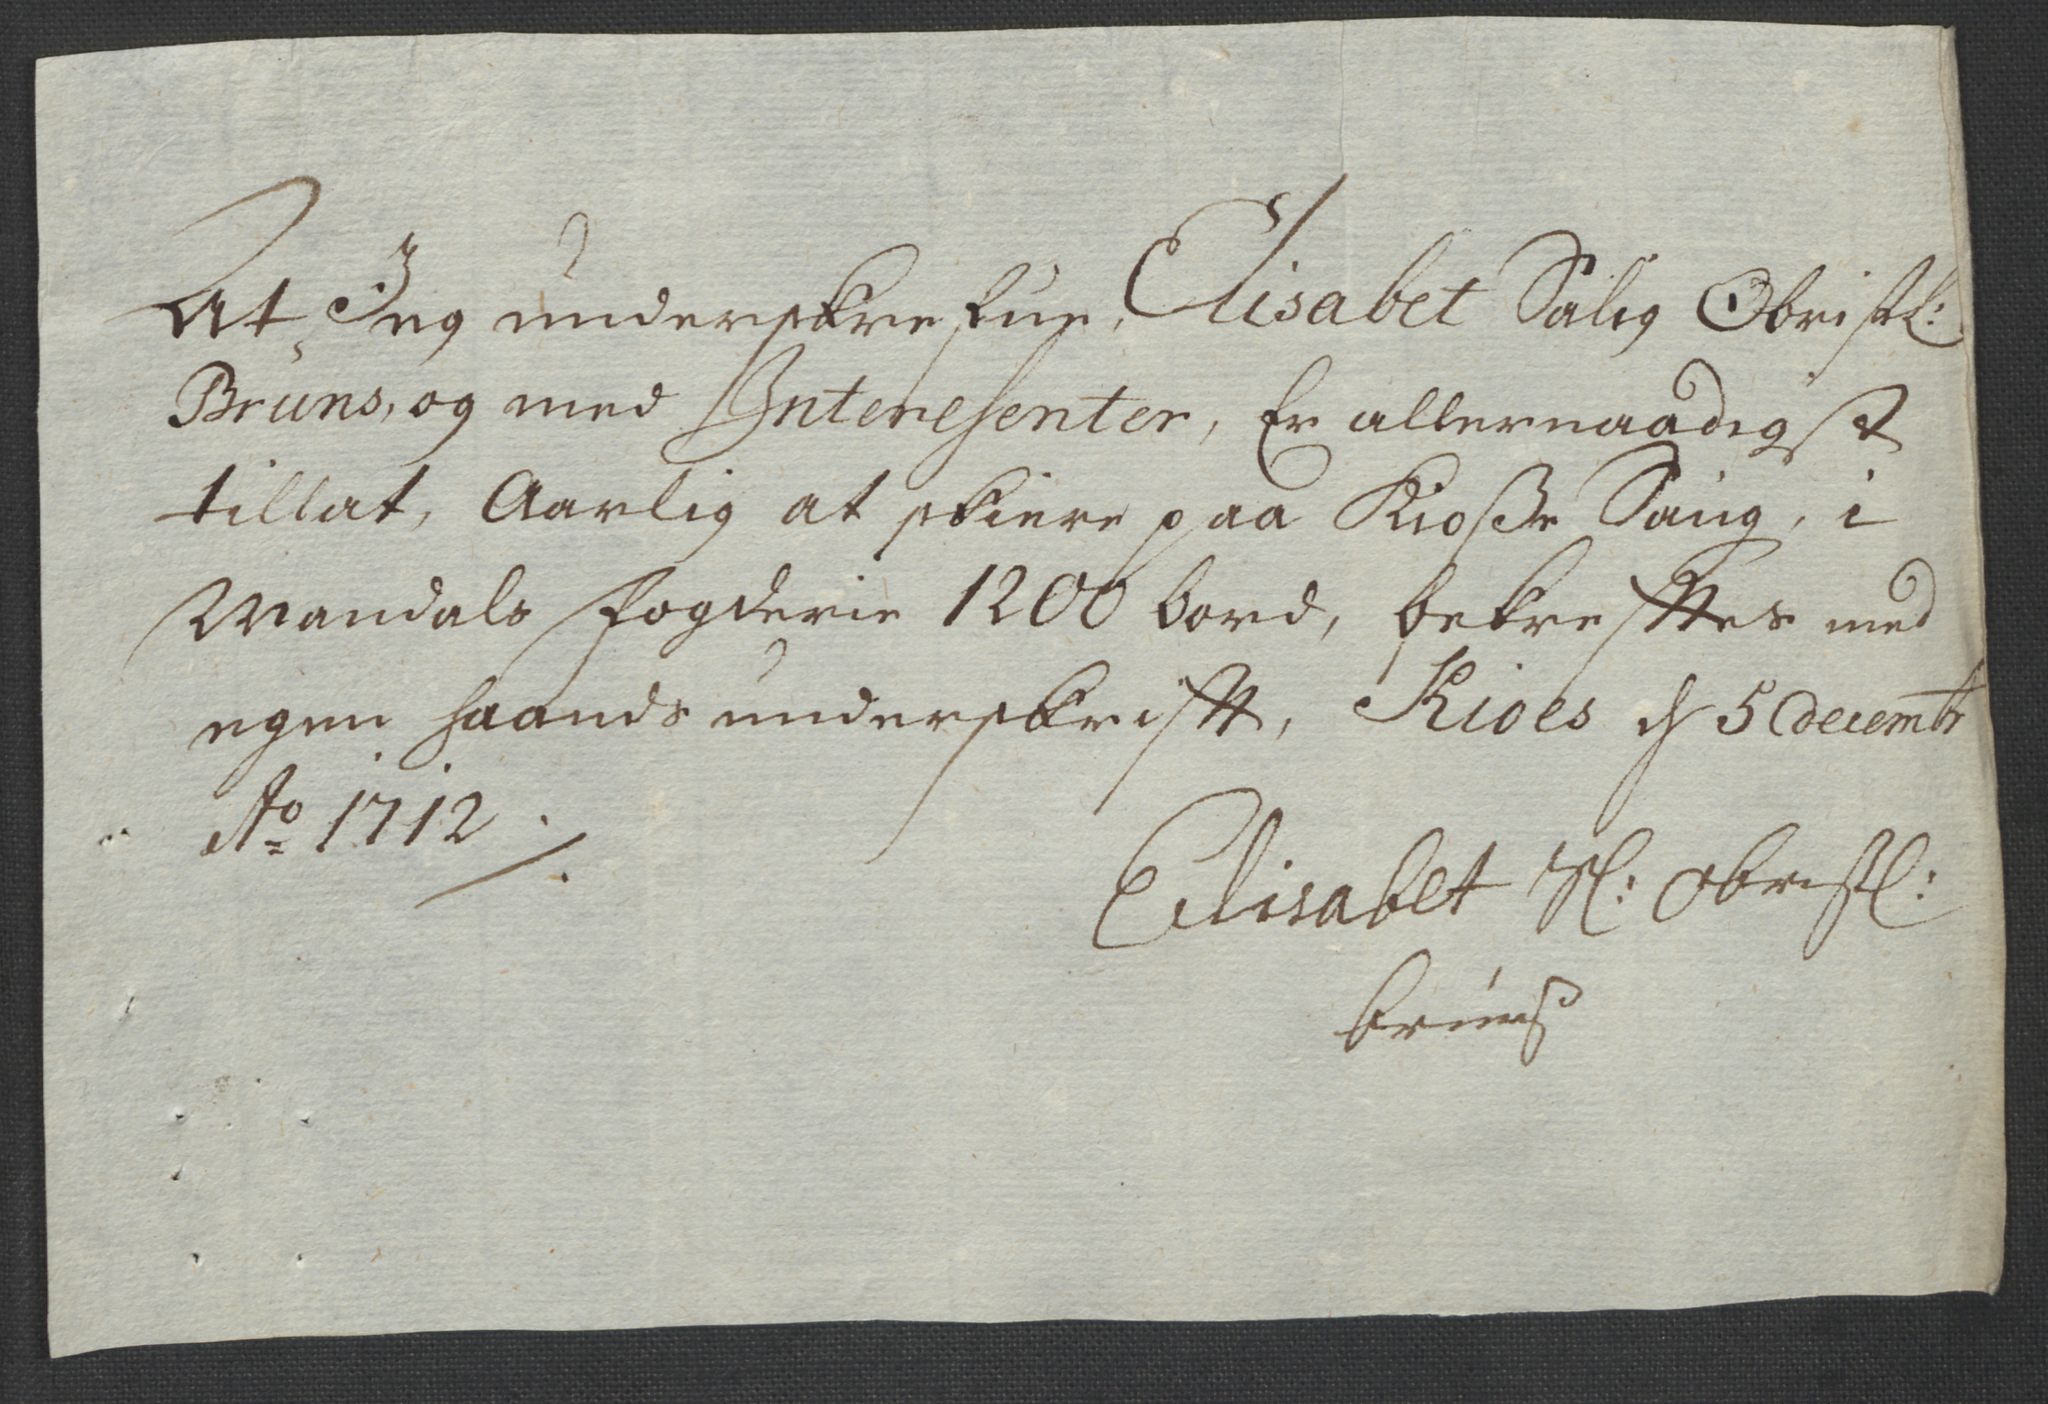 At Jeg underskrefne, Elisabet Salig Obristl:
Bruns, og med Interesenter, Er allernaadigst
tillat, Aarlig at skiere paa Kioße Saug, i
Mandals fogderie 1200 bord, bekrefftes med
egen haands underskrifft, Kioes d 5 decembr
Ao 1712
Elisabet Sl: obristl:
bruns